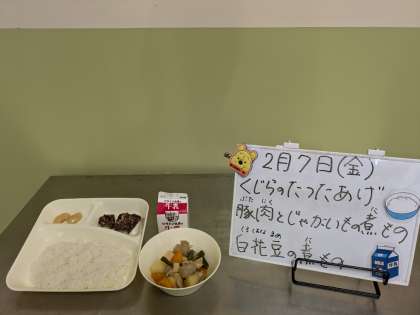 2月7日(金)
くじらのたつたあげ
ぶた にく に
豚肉とじゃがいもの煮もの
しろはなまめ に
白花豆の煮もの
牛乳